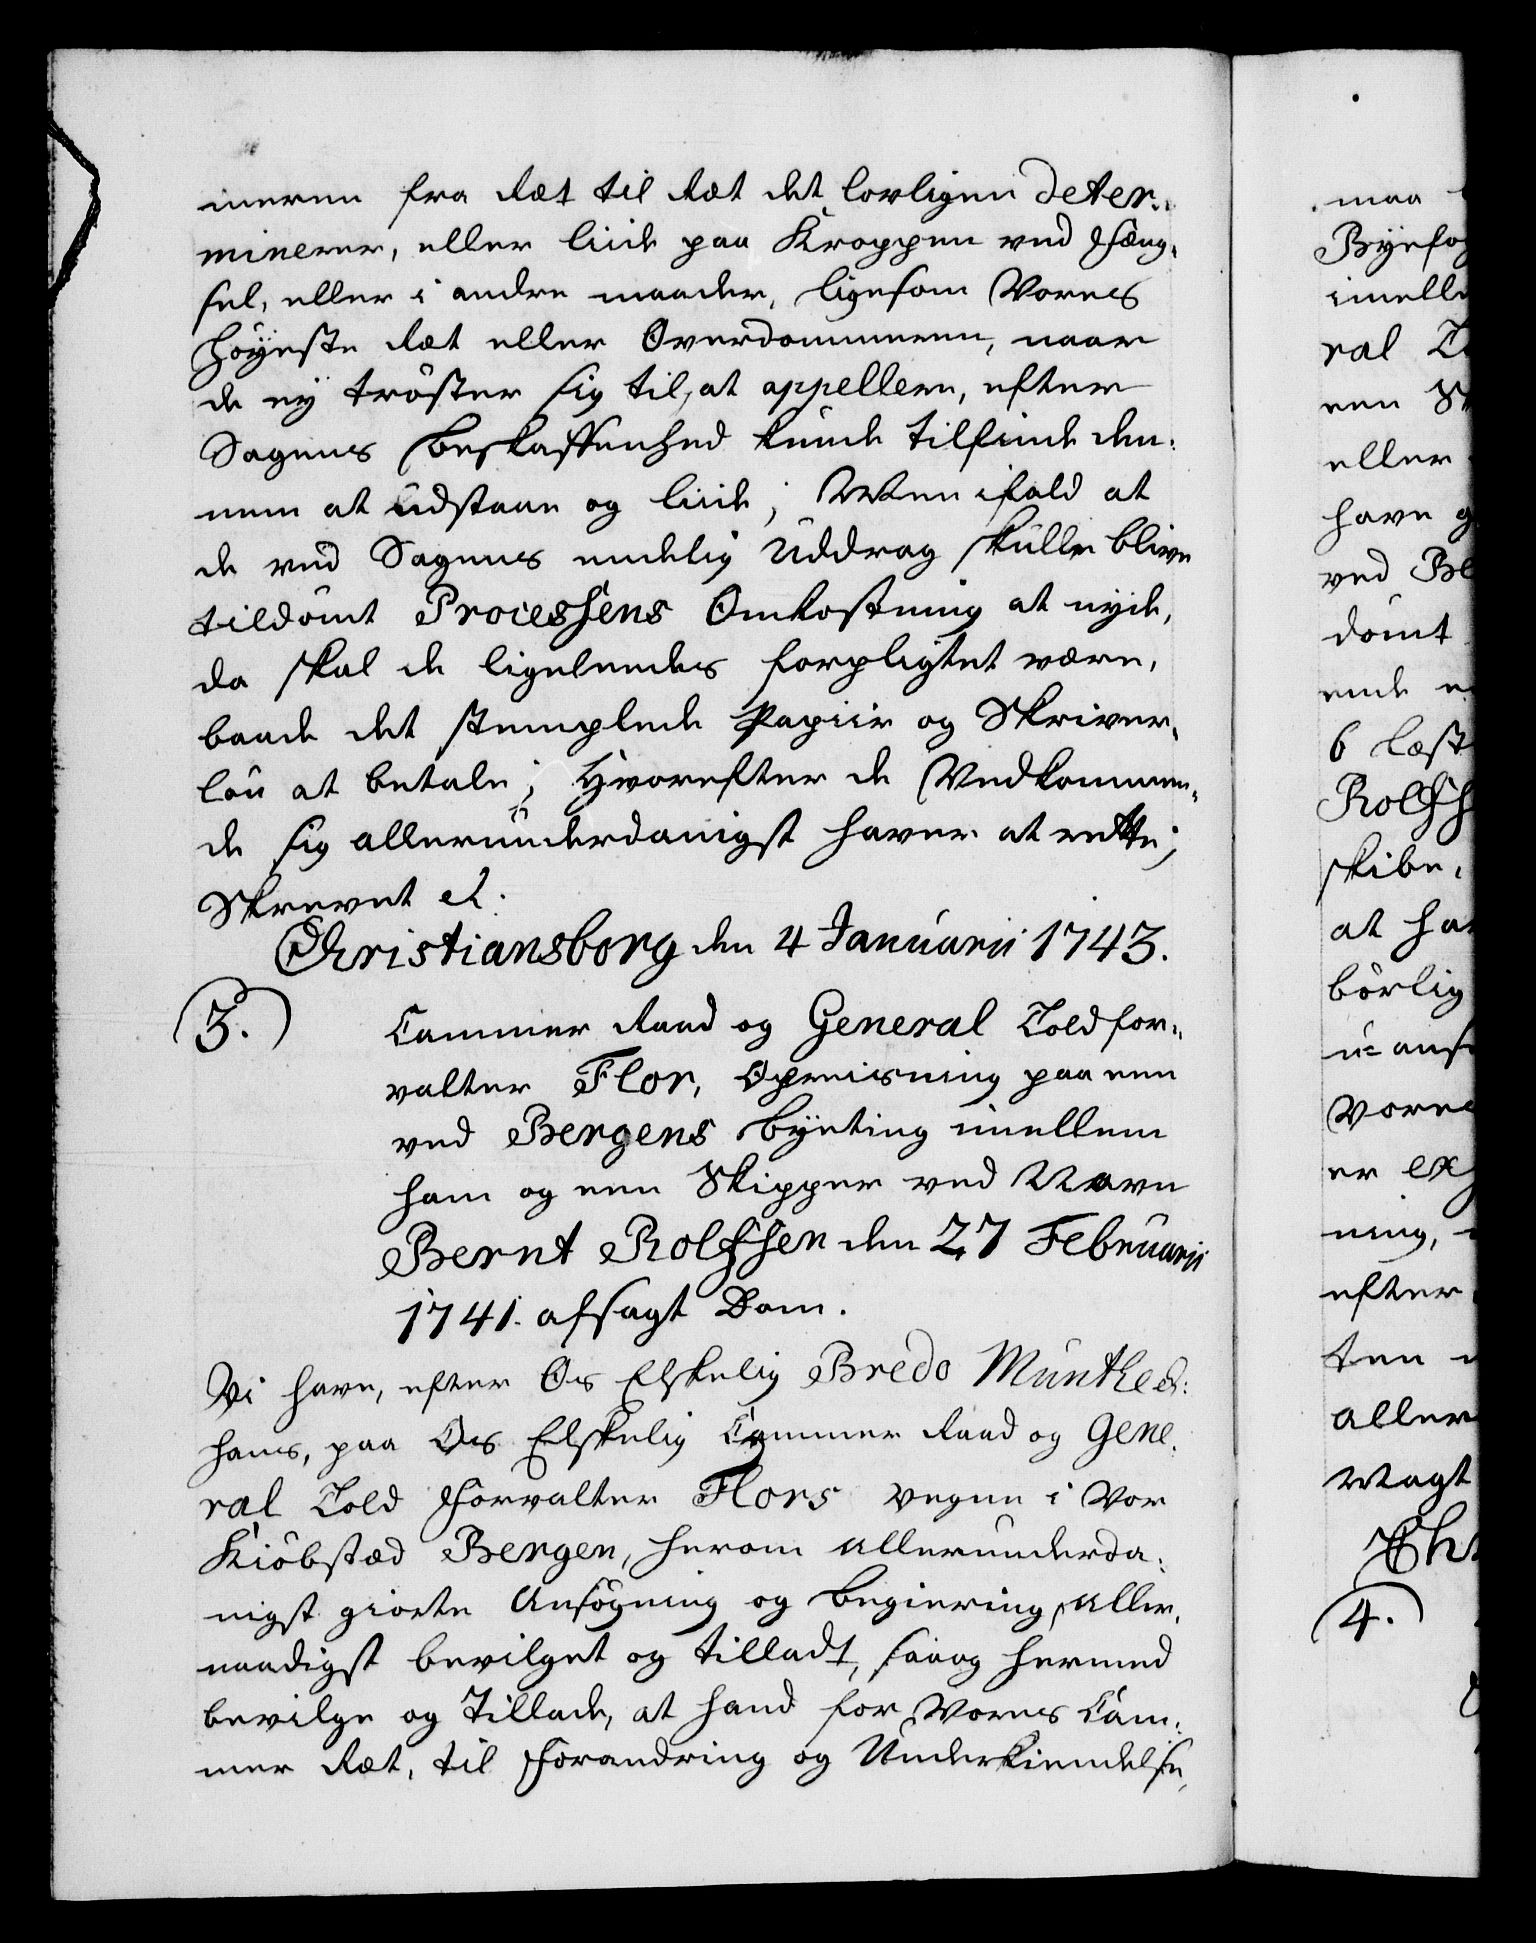 meren fra Ræt til Ræt det lovligen deter-
minerer, eller liide paa Kroppen ved Fæng-
sel, eller i andre maader, ligesom Vores
Høyeste Ræt eller Overdommeren, naar
de ey trøster sig til, at appellere, efter
Sagens beskaffenhed kunde tilfinde den-
nem at udstaae og liide; Men ifald at
de ved Sagens endelig Uddrag skulle blive
tildømt Processens Omkostning at nyde,
da skal de ligeleedes forpligtet være,
baade det stemplede Papiir og Skriver-
løn at betale; Hvorefter de Vedkommen-
de sig allerunderdanigst haver at rette;
Skrevet etc.
Christiansborg den 4 Januarii 1743.
3.
Cammer Raad og General Toldfor-
valter Flor, Opreisning paa een
ved Bergens byeting imellem
ham og een Skipper ved Navn
Bernt Rolfsen den 27 Februarii
1741. afsagt Dom.
Vi have, efter Os Elskelig Bredo Munthes:
hans, paa Os Elskelig Cammer Raad og Gene-
ral Told Forvalter Flors vegne i Vor
Kiøbstæd Bergen, herom allerunderda-
nigst giorte Ansøgning og begiering, aller-
naadigst bevilget og tilladt, saaog hermed
bevilge og Tillade, at hand for Vores Cam-
mer Ræt, til Forandring og Underkiendelse,
maa
Byefog
imelle
ral To
een Sk
eller
have g
ved Be
dømt
ende e
6 Læst
Rolfs
skibe,
at ha
børlig
u-ans
Vores
er ex
ning,
efter
ten
aller
Magt
Chr
4.